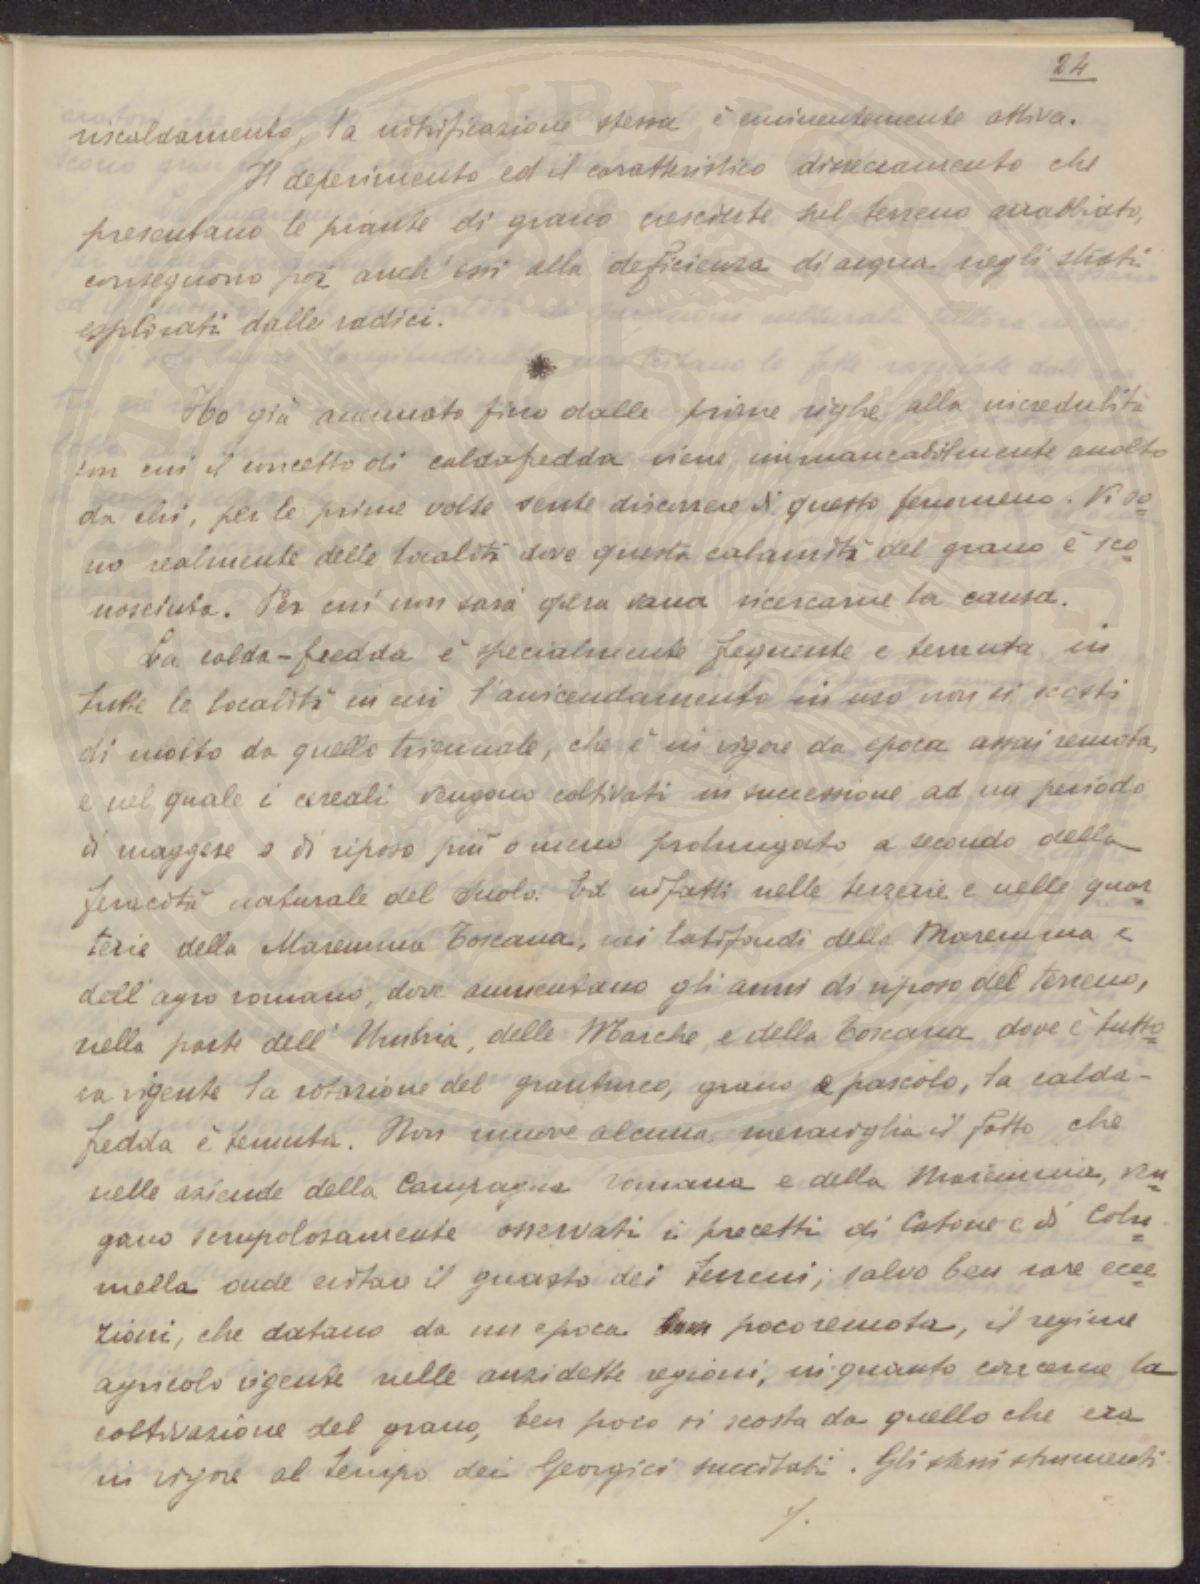 24
riscaldamento, la nitrificazione stessa è eminentemente attiva.
Il deperimento ed il caratteristico disseccamento che
presentano le piante di grano cresciute sul terreno arrabbiato,
conseguono poi anch'essi alla deficienza di acqua negli strati
esplorati dalle radici.
Ho già accennato fino dalle prime righe alla incredulità
con cui il concetto di caldafredda viene immancabilmente accolto
da chi, per le prime volte sente discorrere di questo fenomeno. Vi so=
no realmente delle località dove questa calamità del grano è sco=
nosciuta. Per cui non sarà opera vana ricercarne la causa.
La calda-fredda è specialmente frequente e temuta in
tutte le località in cui l'avvicendamento in uso non si scosti
di molto da quello triennale, che è in vigore da epoca assai remota,
e nel quale i cereali vengono coltivati in successione ad un periodo
di maggese o di riposo più o meno prolungato a secondo della
feracità naturale del suolo. Ed infatti nelle terzerie e nelle quar=
terie della Maremma Toscana, nei latifondi della Maremma e
dell'agro romano, dove aumentano gli anni di riposo del terreno,
nella parte dell'Umbria, delle Marche e della Toscana dove è tutto=
ra vigente la rotazione del granturco, grano e pascolo, la calda-
fredda è temuta. Non muove alcuna meraviglia il fatto che
nelle aziende della Campagna romana e della Maremma, ven=
gano scrupolosamente osservati i precetti di Catone e di Colu=
mella onde evitar il guasto dei terreni; salvo ben rare ecce=
zioni, che datano da un epoca poco remota, il regime
agricolo vigente nelle anzidette regioni, in quanto concerne la
coltivazione del grano, ben poco si scosta da quello che era
in vigore al tempo dei Georgici succitati. Gli stessi strumenti
./.